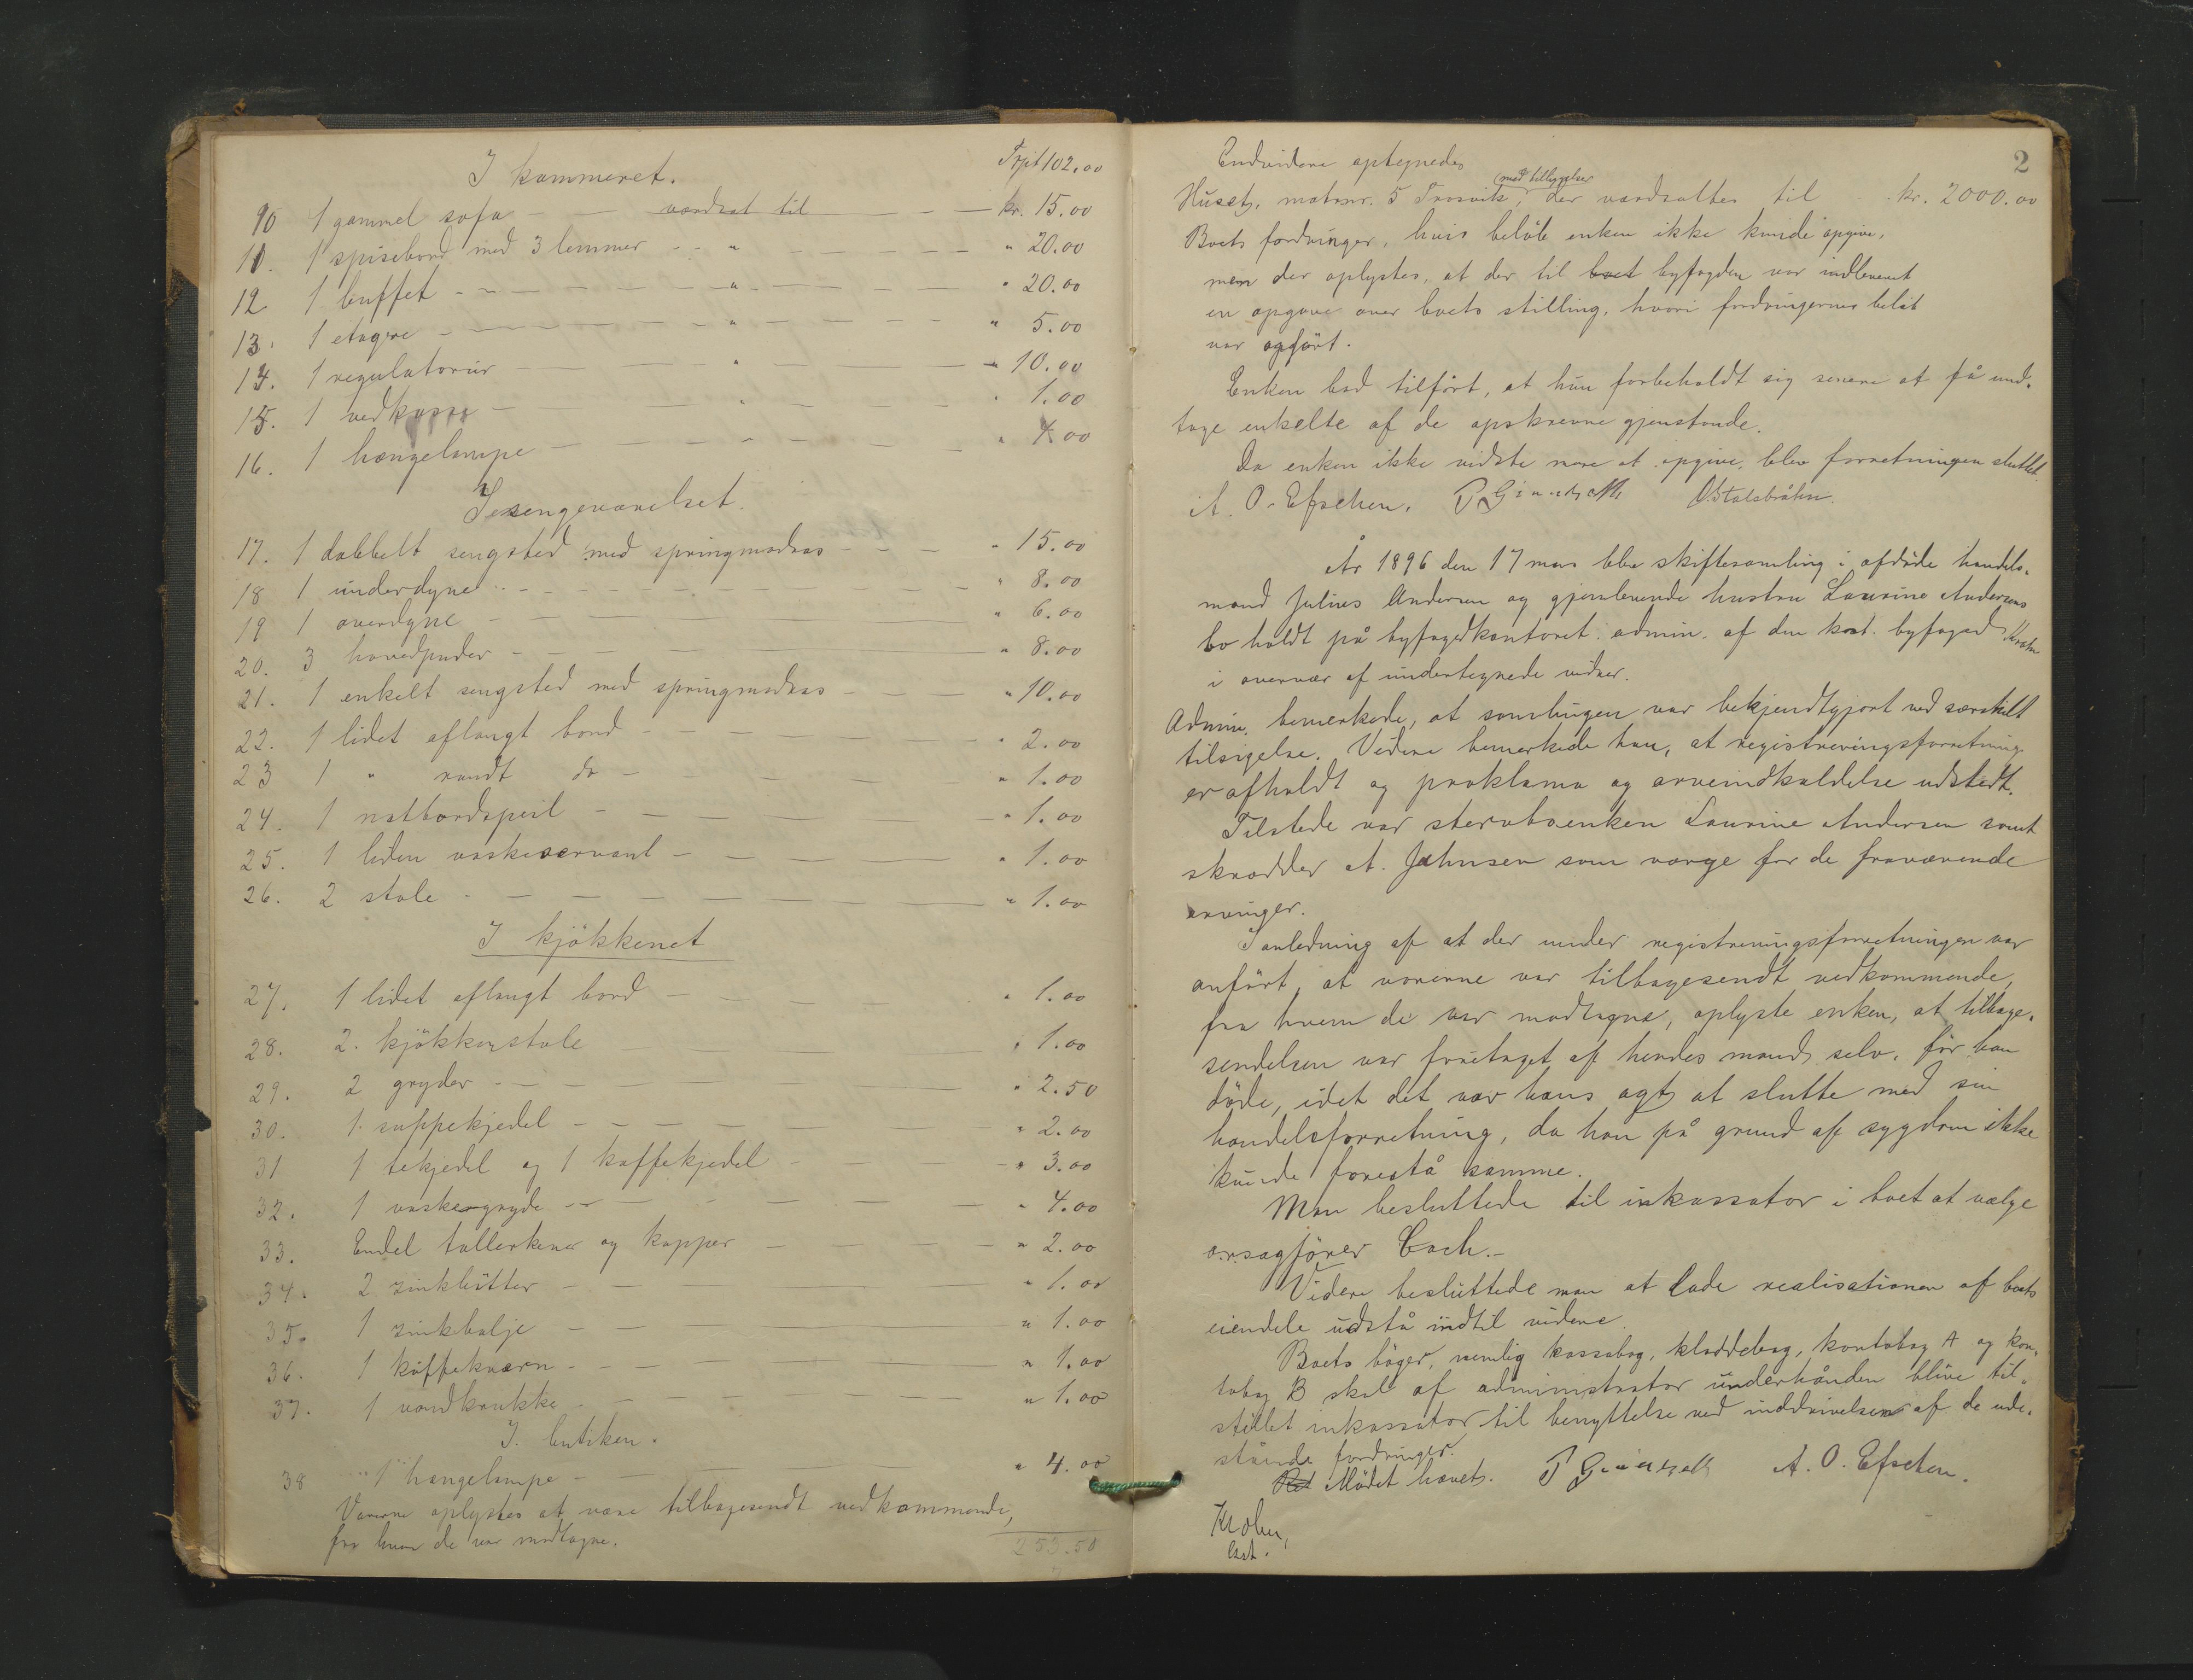 Trpt 102.00
I kammeret.
10 1 gammel sofa - - værdsat til - - - kr. 15.00
11. 1 spisebord med 3 lemmer - - " - - - " 20.00
12 1 buffet - - - " - - - " 20.00
13. 1 etagere - - - " - - - " 5.00
14. 1 regulatorur - - " - - " 10.00
15. 1 vedkasse - - " - - " 1.00
16. 1 hængelampe - - " - - " 4.00
I sengeværelset.
17. 1 dobbelt sengsted med springmadras - - - " 15.00
18 1 underdyne - - - " 8.00
19 1 overdyne - - - " 6.00
20. 3 hovedpuder - - - " 8.00
21. 1 enkelt sengsted med springmadras - - - " 10.00
22. 1 lidet aflangt bord - - - " 2.00
23 1 " rundt do - - - " 1.00
24. 1 natbordspeil - - - " 1.00
25. 1 liden vaskeservant - - - " 1.00
26. 2 stole - - - " 1.00
I kjökkenet
27. 1 lidet aflangt bord - - - " 1.00
28. 2. kjökkenstole - - - " 1.00
29. 2 gryder - - - " 2.50
30. 1 suppekjedel - - - " 2.00
31 1 tekjedel og 1 kaffekjedel - - - " 3.00
32. 1 vaskegryde - - - " 4.00
33. Endel tallerkener og kopper - - - " 2.00
34. 2 zinkbütter - - - " 1.00
35. 1 zinkbalje - - - " 1.00
36. 1 kaffekværn - - - " 1.00
37. 1 vandkrukke - - - " 1.00
I butiken.
38 1 hængelampe - - - " 4.00
Varerne oplystes at være tilbagesendt vedkommende,
fra hvem de var modtagne.
253.50
2
Endvidere optegnedes
med tilbyggelser
Huset, matrnr. 5 Trosvik, der værdsattes til - kr. 2000.00
Boets fordringer, hvis belöb enken ikke kunde opgive,
men der oplystes, at der til boet byfogden var indleveret
en opgave over boets stilling, hvori fordringernes belöb
var opfört.
Enken bad tilfört, at hun forbeholdt sig senere at få und-
tage enkelte af de opskrevne gjenstande.
Da enken ikke vidste mere at opgive, blev forretningen sluttet.
A. O. Efschen.
År 1896 den 17 mars blev skiftesamling i afdöde handels-
mand Julius Andersen og gjenlevende hustru Laurine Andersens
bo holdt på byfogedkontoret admin. af den konst. byfoged Krohn
i overvær af undertegnede vidner.
Admin. bemerkede, at samlingen var bekjendtgjort ved særskilt
tilsigelse. Videre bemerkede han, at registreringsforretning
er afholdt og proklama og arveindkaldelse udstedt.
Tilstede var stervboenken Laurine Andersen samt
skrædder A. Johnsen som værge for de fraværende
arvinger.
I anledning af at der under registreringsforretningen var
anfört, at varerne var tilbagesendt vedkommende,
fra hvem de var modtagne, oplyste enken, at tilbage-
sendelsen var foretaget af hendes mand selv, för han
döde, idet det var hans agt at slutte med sin
handelsforretning, da han på grund af sygdom ikke
kunde forestå samme.
Man besluttede til inkassator i boet at vælge
o.r.sagförer Coch.-
Videre besluttede man at lade realisationen af boets
eiendele udstå indtil videre.
Boets böger, nemlig kassabog, kladdebog, kontobog A og kon-
tobog B skal af administrator underhånden blive til-
stillet inkassator til benyttelse ved inddrivelsen af de ude-
stående fordringer.
Ret Mödet hævet. A. O. Efschen.
Krohn,
kst.